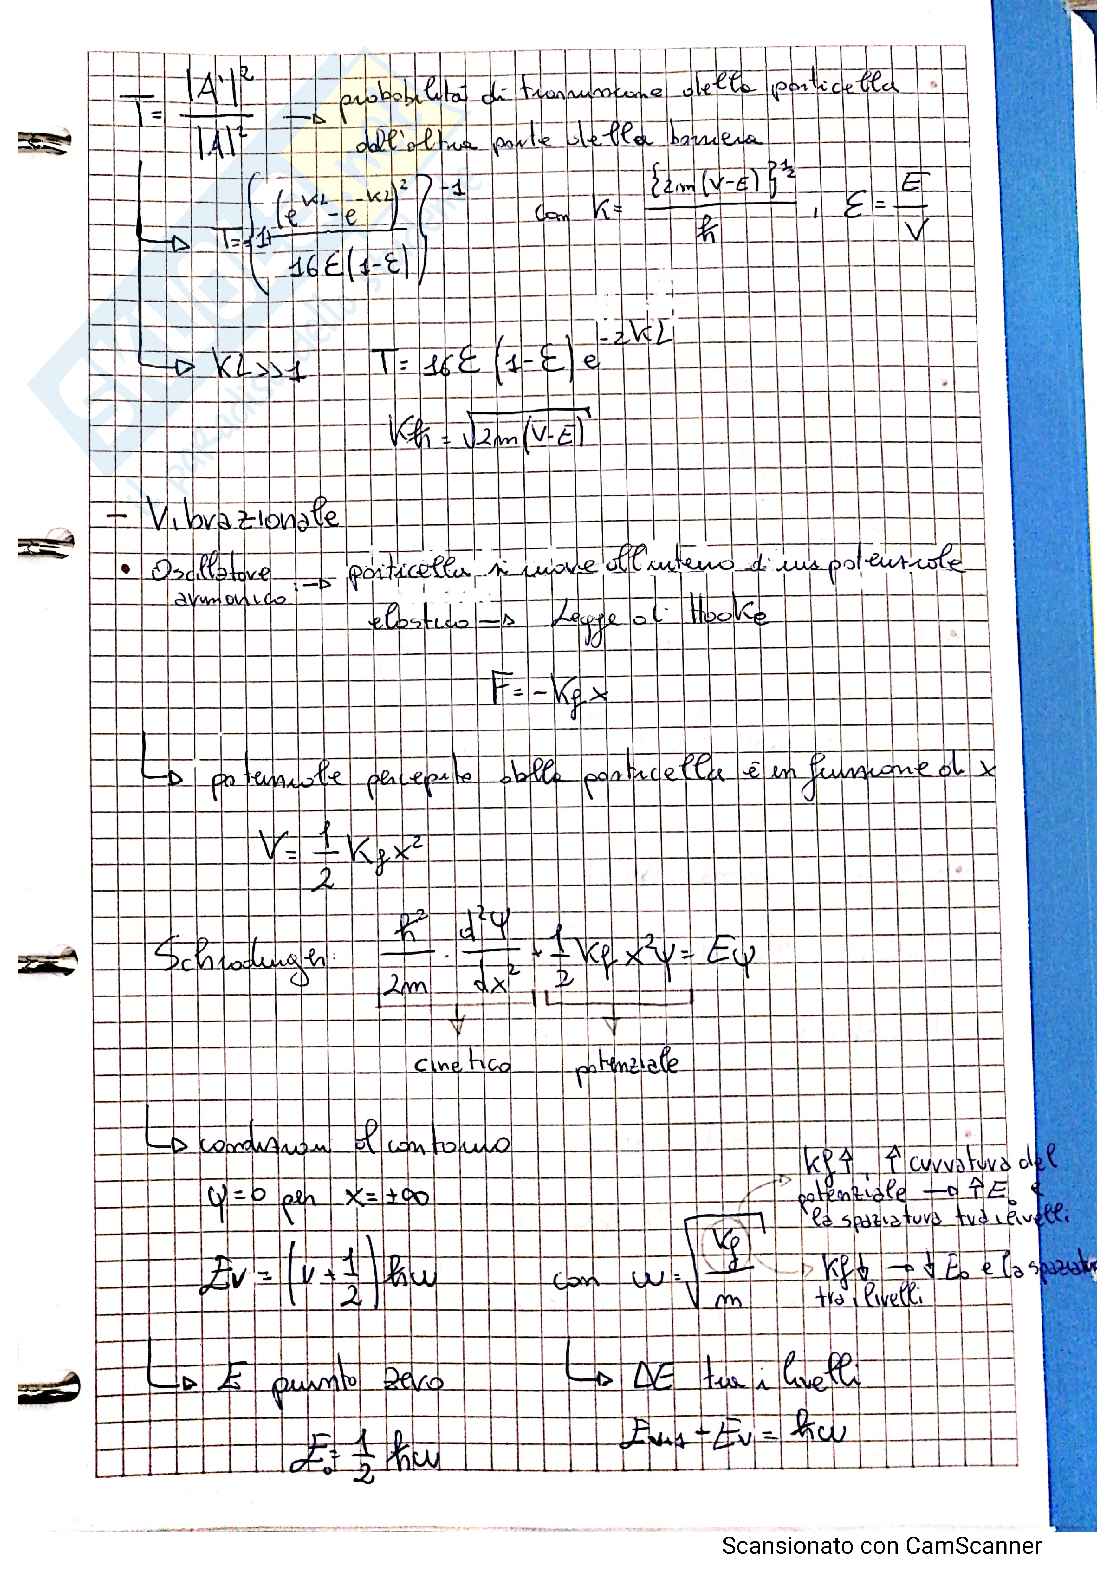 T = |A'|² / |A|² → probabilità di trasmissione della particella
dall'altra parte della barriera
T = {1 + (e^KL - e^-KL)² / 16 ε(1-ε)}^-1 con K = {2m(V-E)}^½ / ħ , ε = E / V
KL >> 1 T = 16 ε (1-ε) e^-2KL
Kħ = √2m(V-E)
- Vibrazionale
• Oscillatore armonico → particella si muove all'interno di un potenziale
elastico → Legge di Hooke
F = -Kf x
potenziale percepito dalla particella è in funzione di x
V = 1/2 Kf x²
Schrodinger: ħ²/2m · d²ψ/dx² + 1/2 Kf x² ψ = Eψ
cinetico potenziale
condizioni al contorno
ψ = 0 per x = ±∞
Kf ↑, ↑ curvatura del
potenziale → ↑ E₀ e
la spaziatura tra i livelli
Ev = (v + 1/2) ħω con ω = √Kf/m
Kf ↓ → ↓ E₀ e la spaziatu
tra i livelli
E punto zero ΔE tra i livelli
E₀ = 1/2 ħω Ev+1 - Ev = ħω
SKUOLA.net
il paradiso dello studente
Scansionato con CamScanner